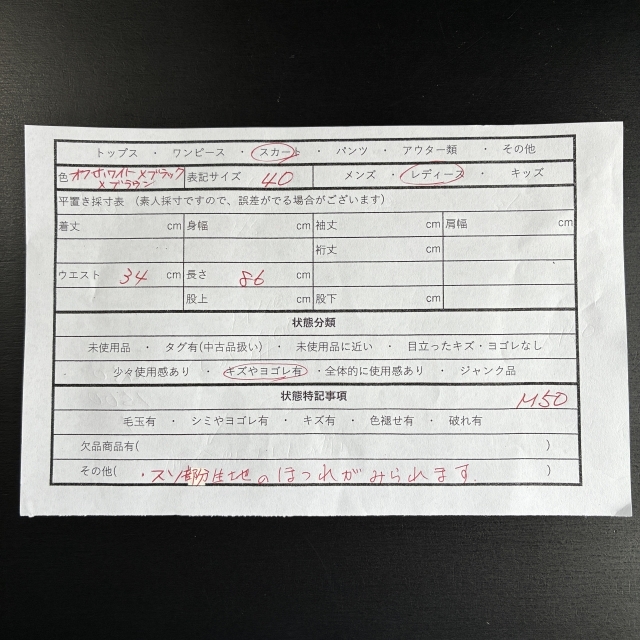 トップス ・ ワンピース ・ スカート ・ パンツ ・ アウター類 ・ その他
色 オフホワイト×ブラック×ブラウン 表記サイズ 40 メンズ ・ レディース ・ キッズ
平置き採寸表 (素人採寸ですので、誤差がでる場合がございます)
着丈 cm 身幅 cm 袖丈 cm 肩幅 cm
裄丈 cm
ウエスト 34 cm 長さ 86 cm
股上 cm 股下 cm
状態分類
未使用品 ・ タグ有(中古品扱い) ・ 未使用品に近い ・ 目立ったキズ・ヨゴレなし
少々使用感あり ・ キズやヨゴレ有 ・全体的に使用感あり ・ ジャンク品
状態特記事項 M50
毛玉有 ・ シミやヨゴレ有 ・ キズ有 ・ 色褪せ有 ・ 破れ有
欠品商品有( )
その他( ・スソ部分生地のほつれがみられます。 )